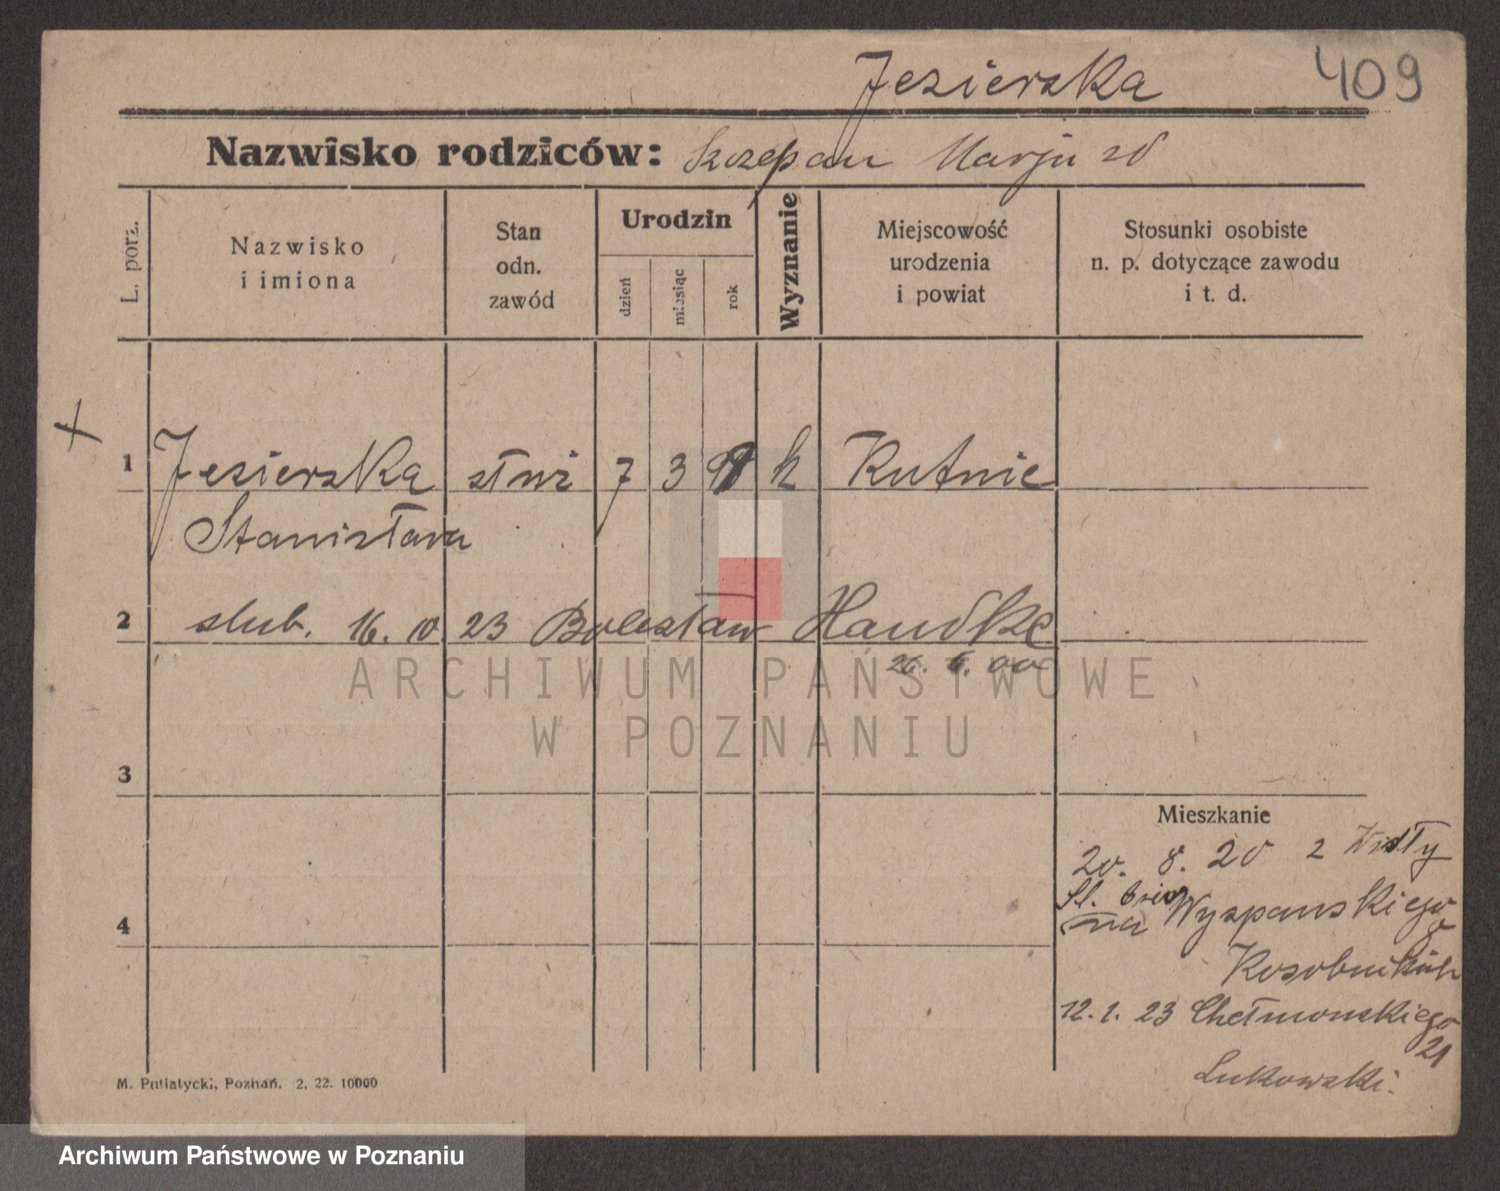 Jezierska 409
Nazwisko rodziców: Szczepan Marju zd
L. porz.
Nazwisko i imiona
Stan odn. zawód
Urodzin
dzień
miesiąc
rok
Wyznanie
Miejscowość urodzenia i powiat
Stosunki osobiste n. p. dotyczące zawodu i t. d.
1 Jezierska służ 7 3 k Kutnie
Stanisława
2 slub. 16. IV 23 Bolesław Handke
26. 6. 00
ARCHIWUM PAŃSTWOWE
W POZNANIU
3
Mieszkanie
20. 8. 20 z Wisły
na Wyspanskiego
4
12. 1. 23 Chełmonskiego
21
Lukowski.
M. Putiatycki, Poznań. 2. 22. 10000
Archiwum Państwowe w Poznaniu